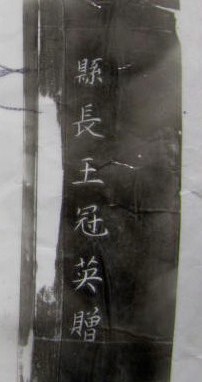 縣長王冠英贈